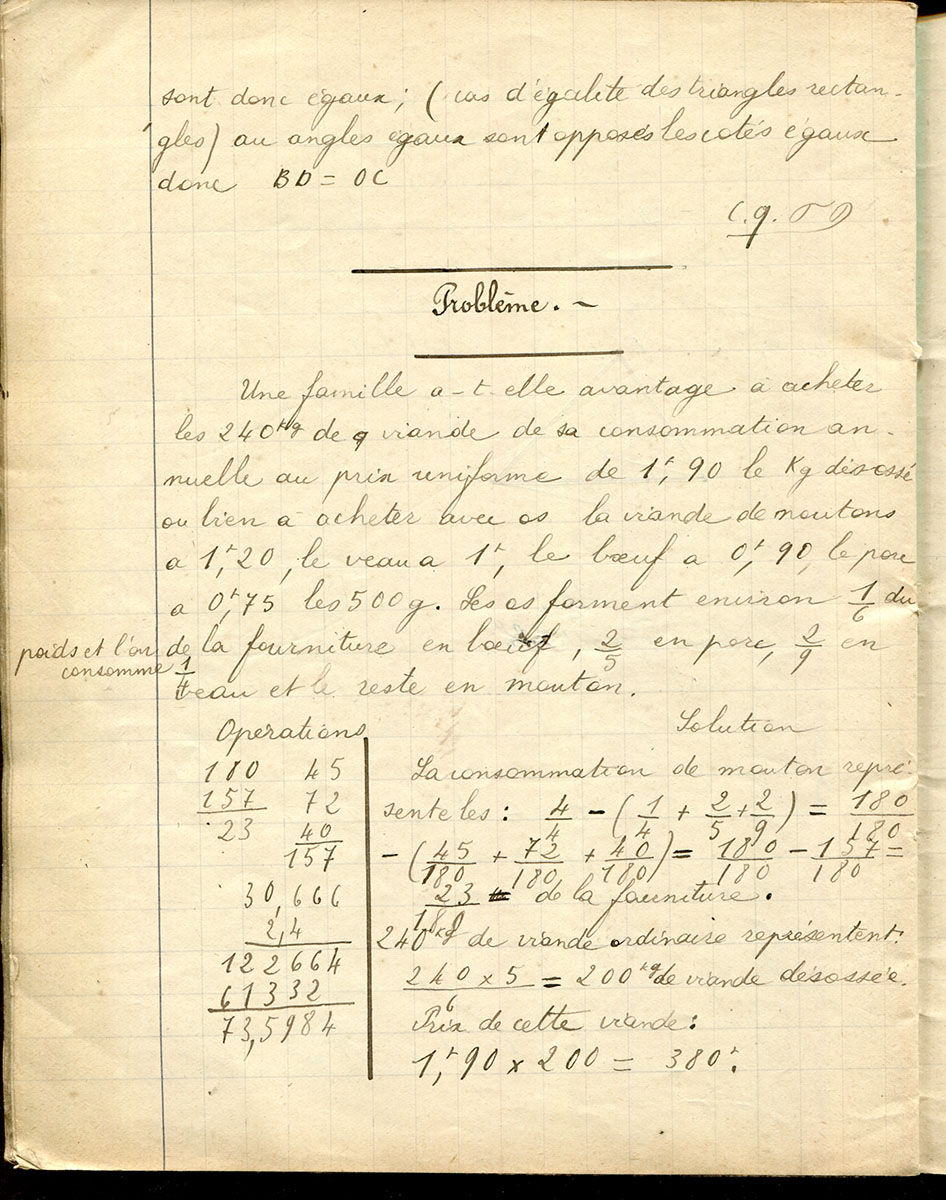 sont donc égaux; (cas d'égalité des triangles rectan-
gles) au angles égaux sont opposés les cotés égaux
donc BD = OC
C.q.F D
Problème. -
Une famille a-t-elle avantage à acheter
les 240kg de viande de sa consommation an-
nuelle au prix uniforme de 1f,90 le Kg désossé
ou bien à acheter avec os la viande de moutons
a 1f,20, le veau a 1f, le bœuf a 0f,90, le porc
a 0f,75 les 500g. Les os forment environ 1/6 du
poids et l'on consomme 1/4
de la fourniture en bœuf, 2/5 en porc, 2/9 en
veau et le reste en mouton.
Operations
180 45
157 72
23 40
157
30,666
2,4
122664
61332
73,5984
Solution
La consommation de mouton repré-
sente les: 4/4 - (1/4 + 2/5 + 2/9) = 180/180
- (45/180 + 72/180 + 40/180) = 180/180 - 157/180 =
23/180 de la fourniture.
240kg de viande ordinaire représentent:
240 x 5/6 = 200kg de viande désossée.
Prix de cette viande:
1f,90 x 200 = 380f.